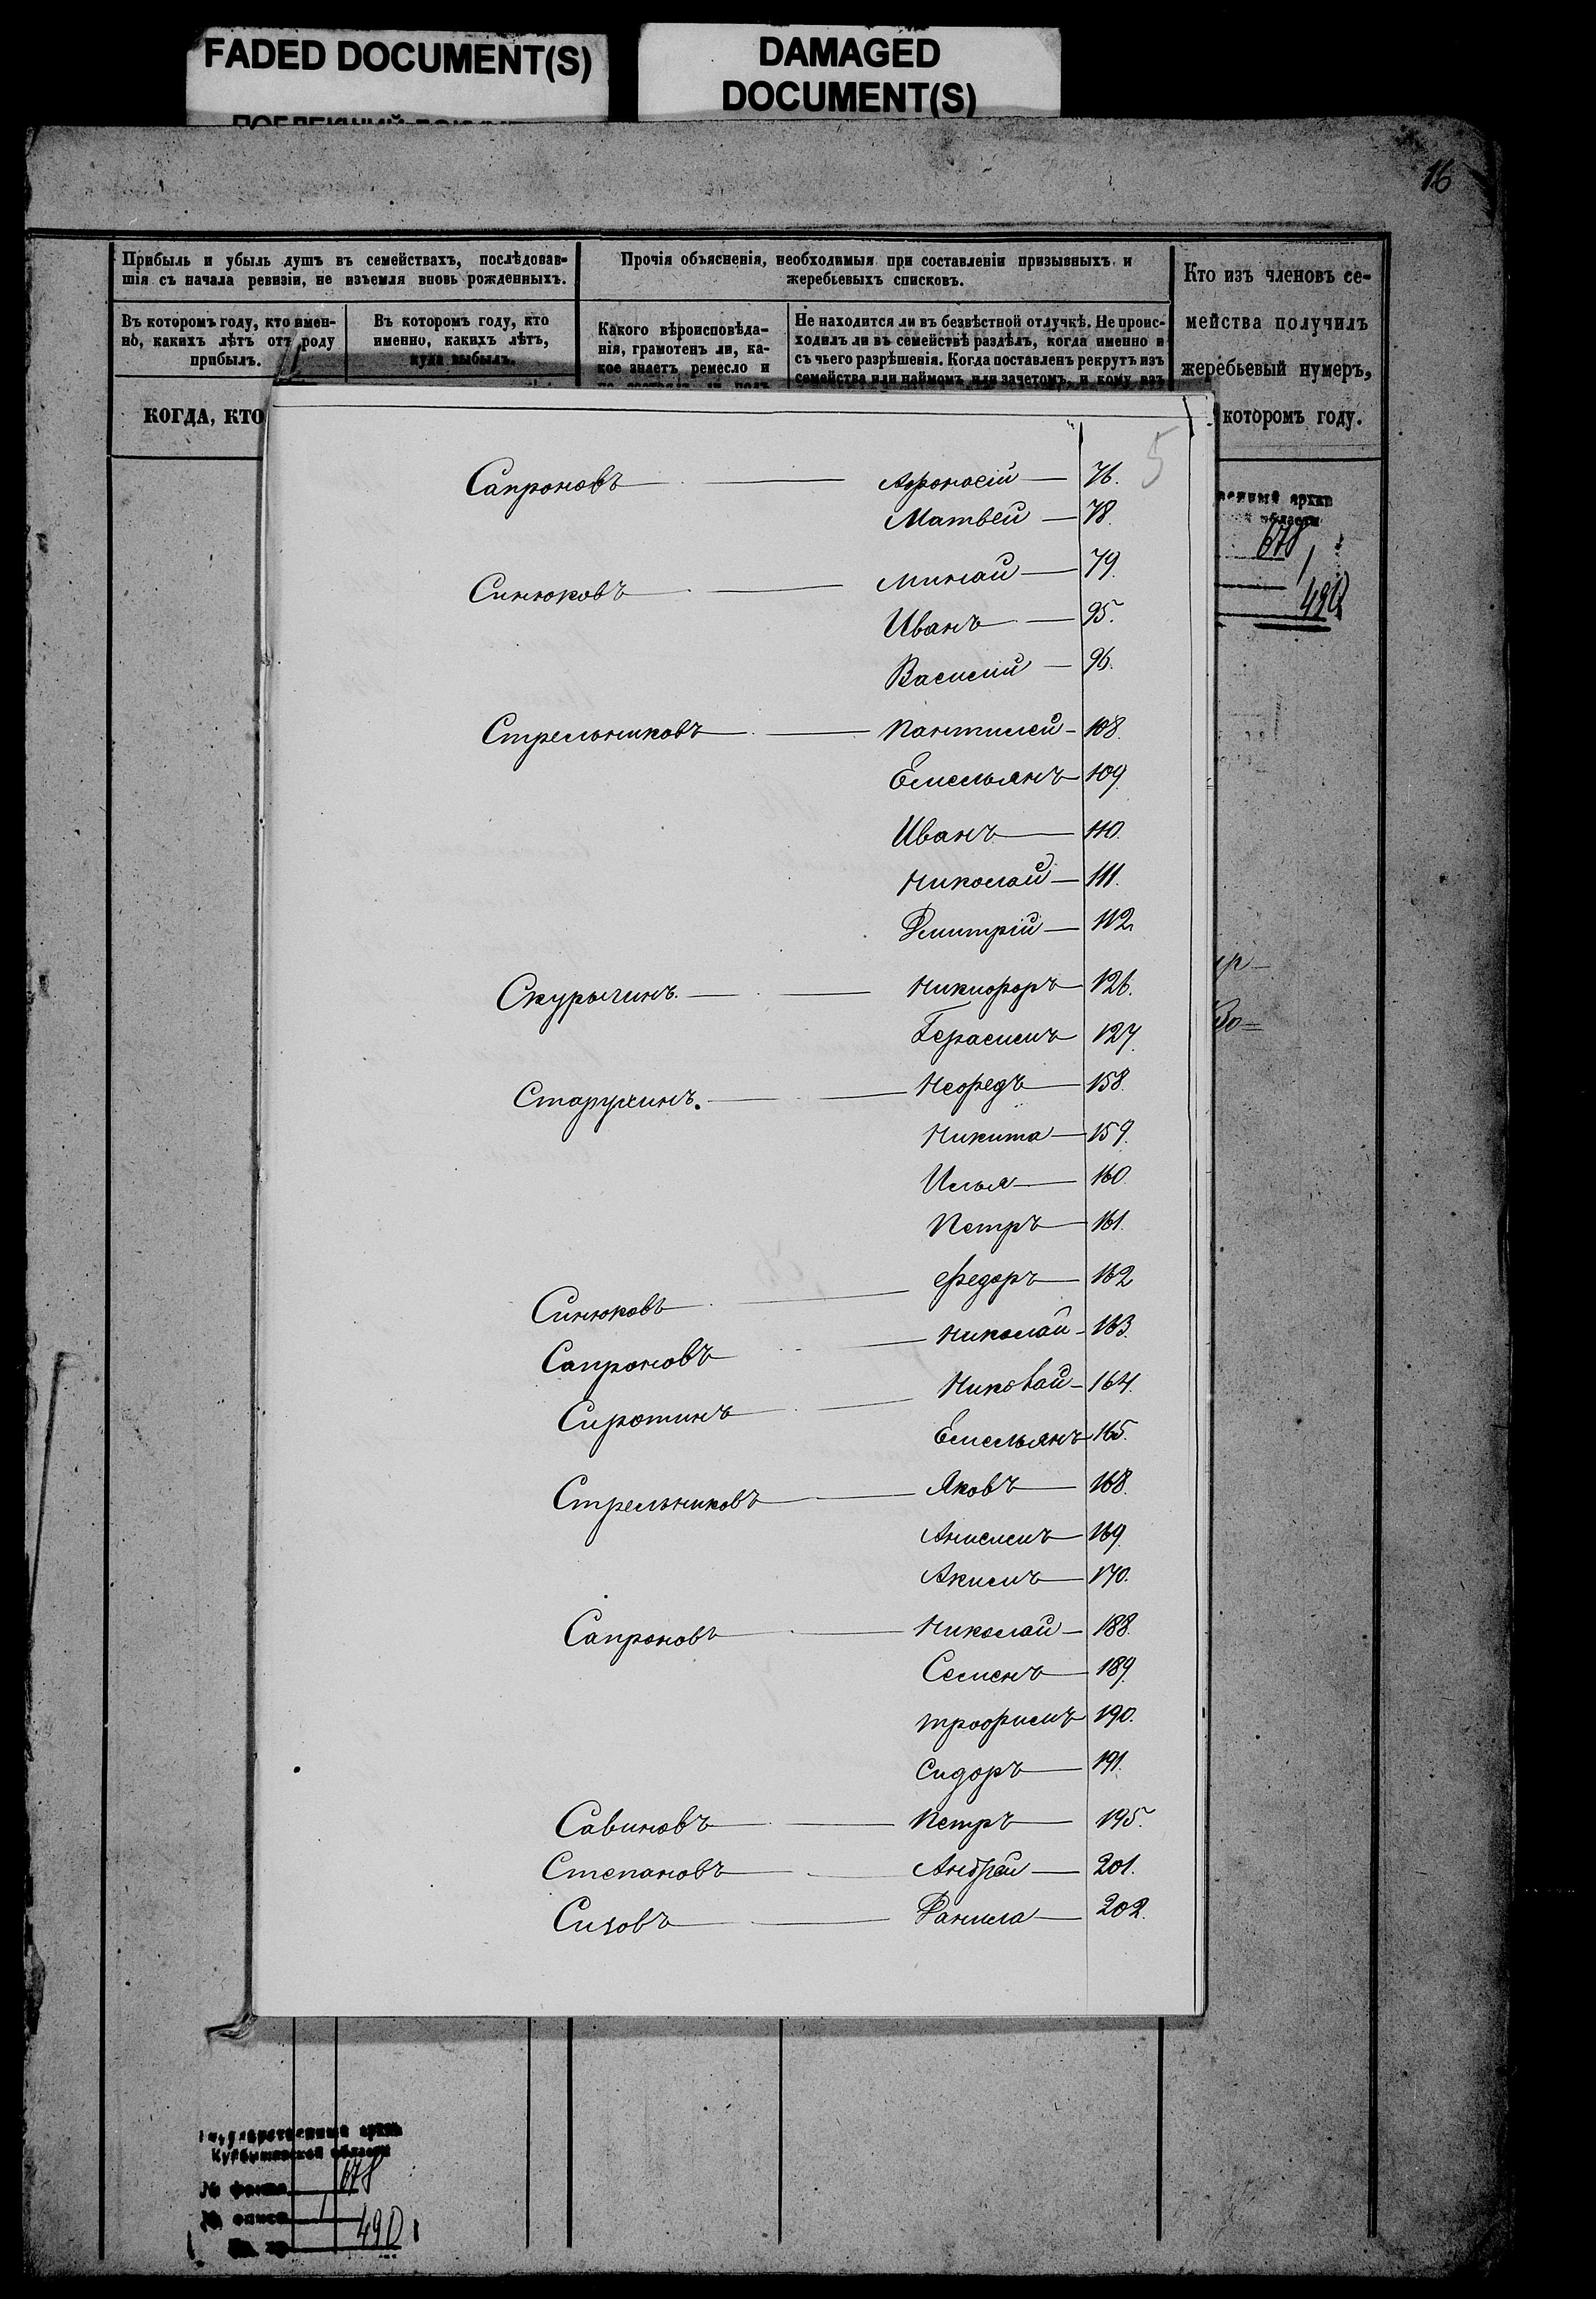 FADED DOCUMENT(S)
DAMAGED
DOCUMENT(S)
16
Прибыль и убыль душъ въ семействахъ, послѣдовав-
шія съ начала ревизіи, не изъемля вновь рожденныхъ.
Въ которомъ году, кто имен-
но, какихъ лѣтъ отъ роду
прибылъ.
Въ которомъ году, кто
именно, какихъ лѣтъ,
куда выбылъ.
Прочія объясненія, необходимыя при составленіи призывныхъ и
жеребьевыхъ списковъ.
Какого вѣроисповѣда-
нія, грамотенъ ли, ка-
кое знаетъ ремесло и
Не находится ли въ безвѣстной отлучкѣ. Не проис-
ходилъ ли въ семействѣ раздѣлъ, когда именно и
съ чьего разрѣшенія. Когда поставленъ рекрутъ изъ
семейства или наймомъ или зачетомъ, и кому изъ
Кто изъ членовъ се-
мейства получилъ
жеребьевый нумеръ,
которомъ году.
КОГДА, КТО
5
Сапроновъ — Афонасій — 76.
Матвей — 78.
Синюковъ — Минай — 79.
Иванъ — 95.
Василий — 96.
Стрельниковъ — Пантилей — 108.
Емельянъ — 109.
Иванъ — 110.
Николай — 111.
Дмитрій — 112
Скурыгинъ. — Никифоръ — 126.
Герасимъ 127.
Старухинъ. — Нефедъ — 158.
Никита — 159.
Илья — 160.
Петръ — 161.
Синюковъ — Федоръ — 162
Сапроновъ — Николай — 163.
Сиротинъ — Николай — 164.
Емельянъ 165.
Стрельниковъ — Яковъ — 168.
Анисимъ 169.
Акимъ — 170.
Сапроновъ — Николай — 188.
Семенъ — 189.
Трофимъ 190.
Сидоръ — 191.
Савиновъ — Петръ — 195.
Степановъ — Андрей — 201.
Сизовъ — Данила — 202.
архив
области
678
1
490
Государственный архив
Куйбышевской области
№ фонда 678
№ описи 1
490